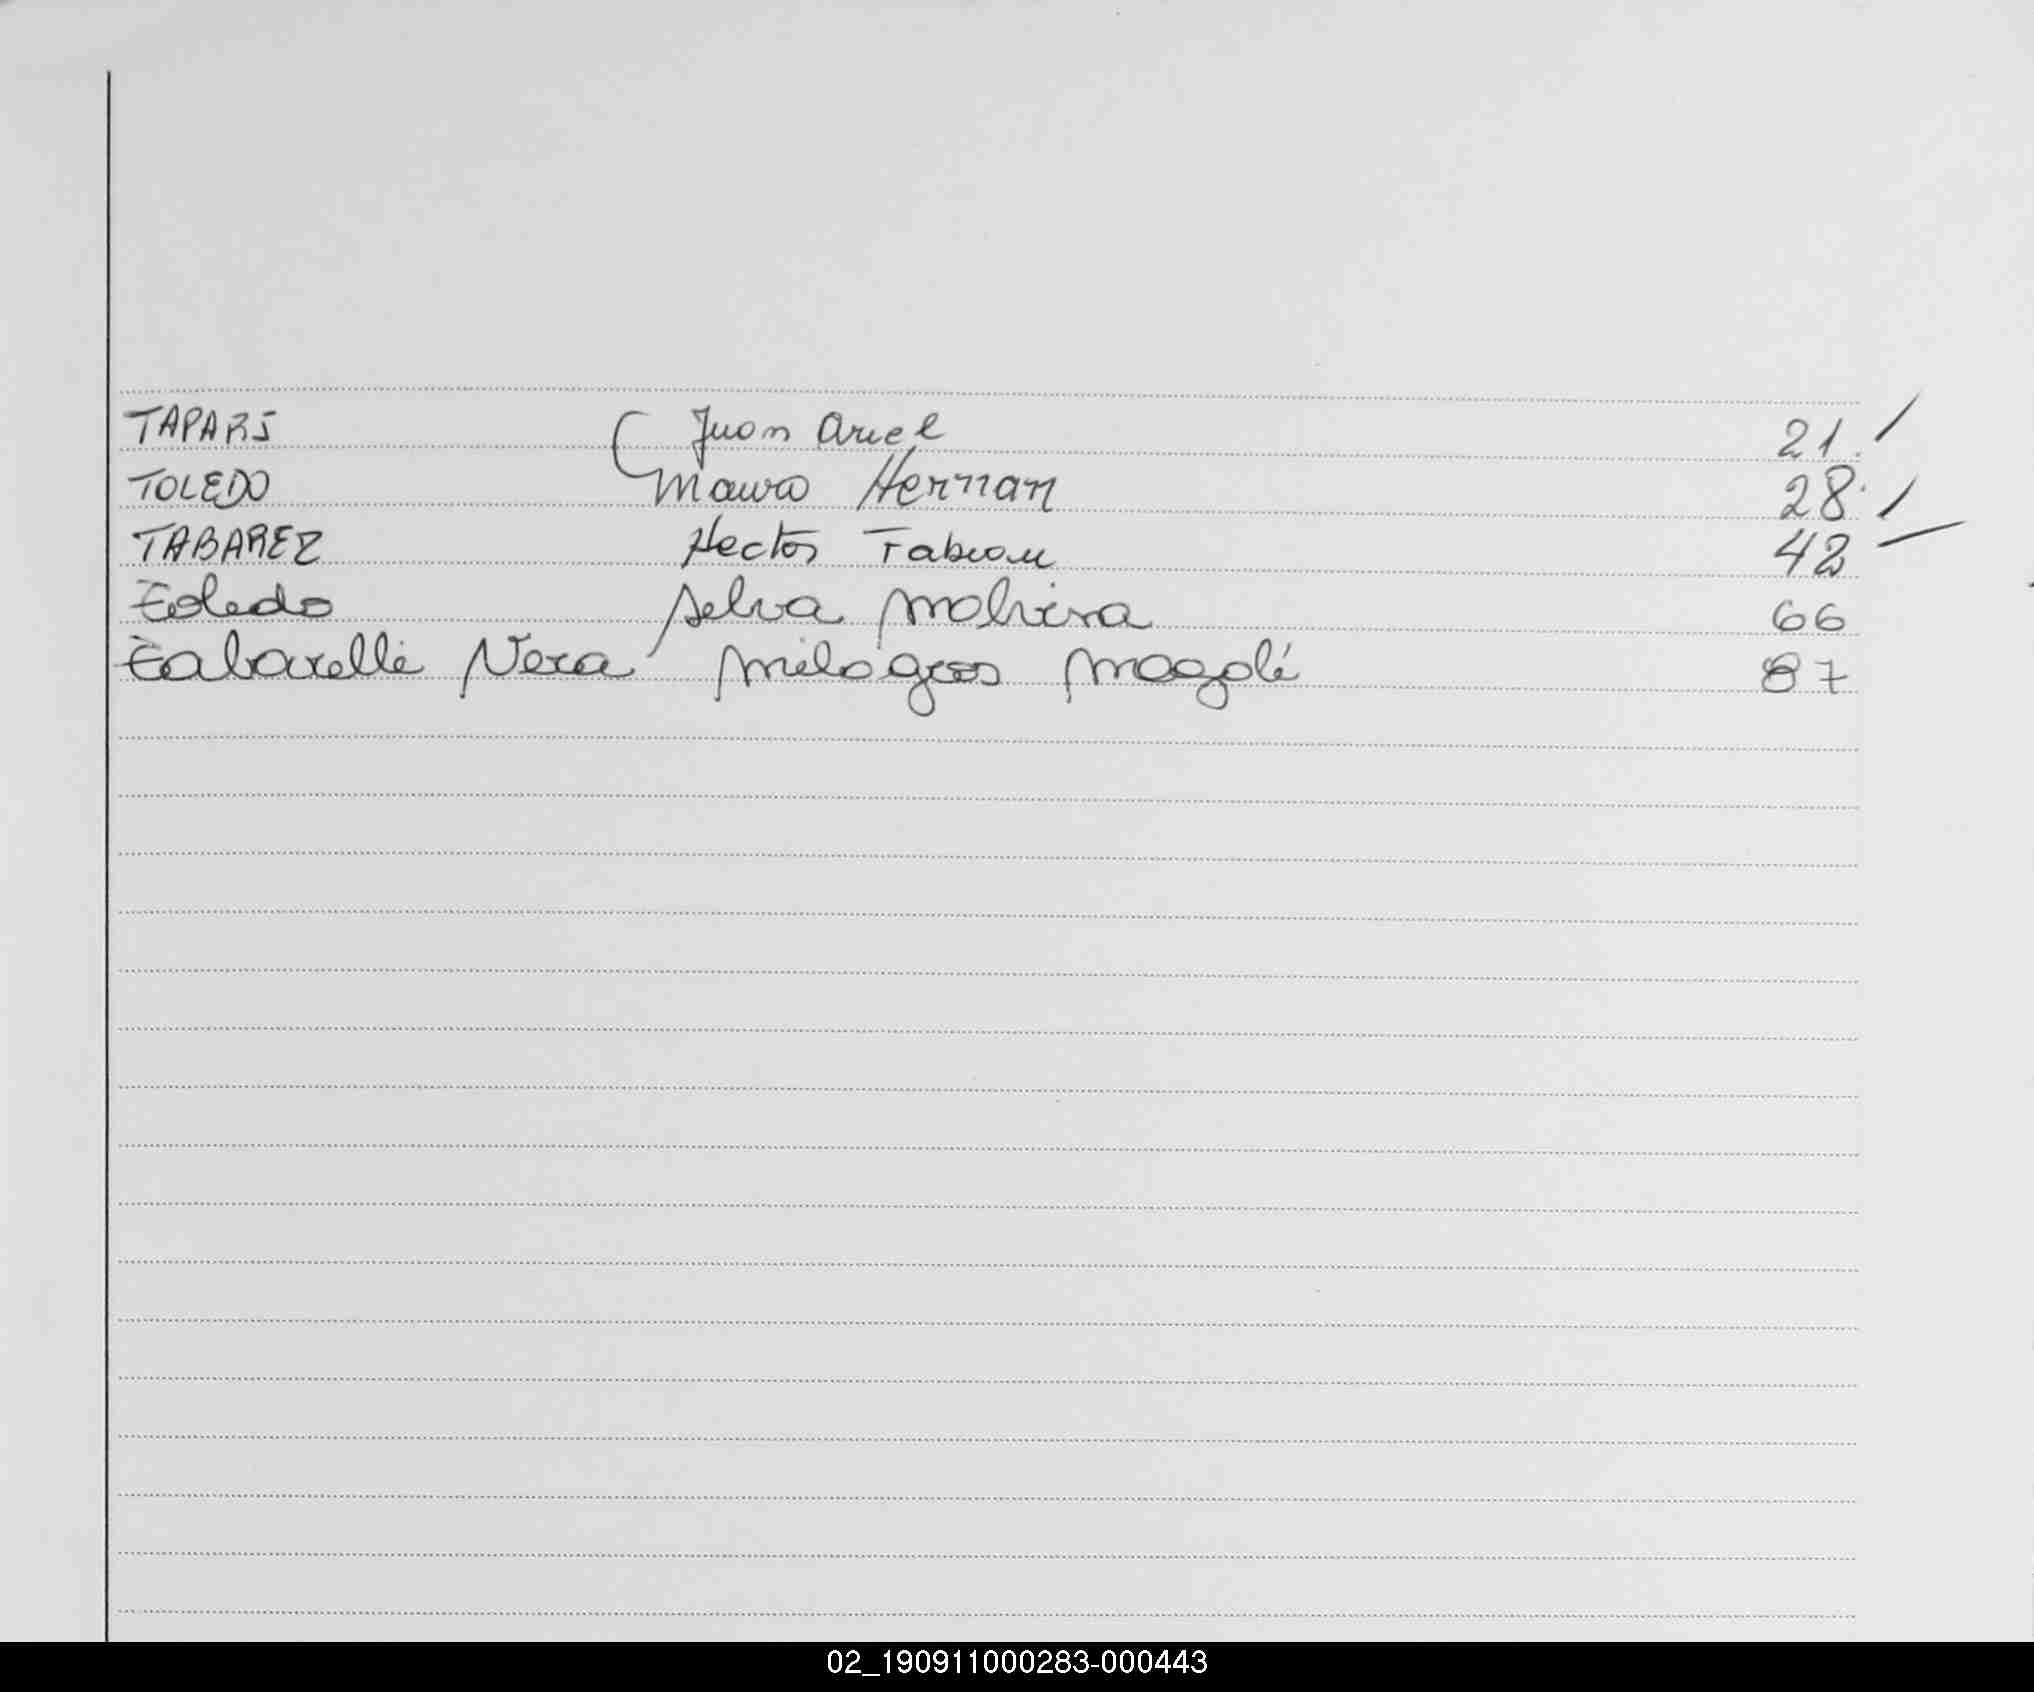 TAPARI Juan Ariel 21.
TOLEDO Mauro Hernan 28.
TABAREZ Hector Fabian 42
Toledo Selva Malvina 66
Tabarelli Vera Milagros Magalí 87
02_190911000283-000443